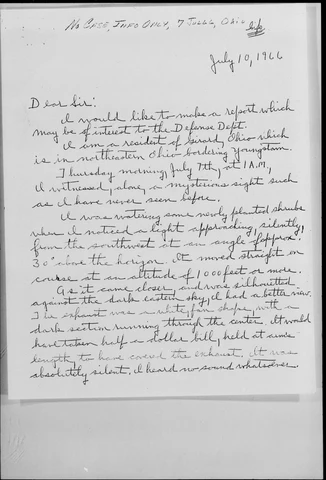 No Case, Info Only, 7 July, Ohio
July 10, 1966
Dear Sir:
I would like to make a report which
may be of interest to the Defense Dept.
I am a resident of Girard, Ohio which
is in northeastern Ohio bordering Youngstown.
Thursday morning, July 7th, at 1 A.M.,
I witnessed, alone, a mysterious sight such
as I have never seen before.
I was watering some newly planted shrubs
when I noticed a light approaching, silently,
from the southwest at an angle of approx.
30° above the horizon. It moved straight on
course at an altitude of 1000 feet or more.
As it came closer, and was silhouetted
against the dark eastern sky, I had a better view.
The exhaust was a white, fan shape, with a
dark section running through the center. It would
have taken half a dollar bill, held at arms
length, to have covered the exhaust. It was
absolutely silent. I heard no sound whatsoever.